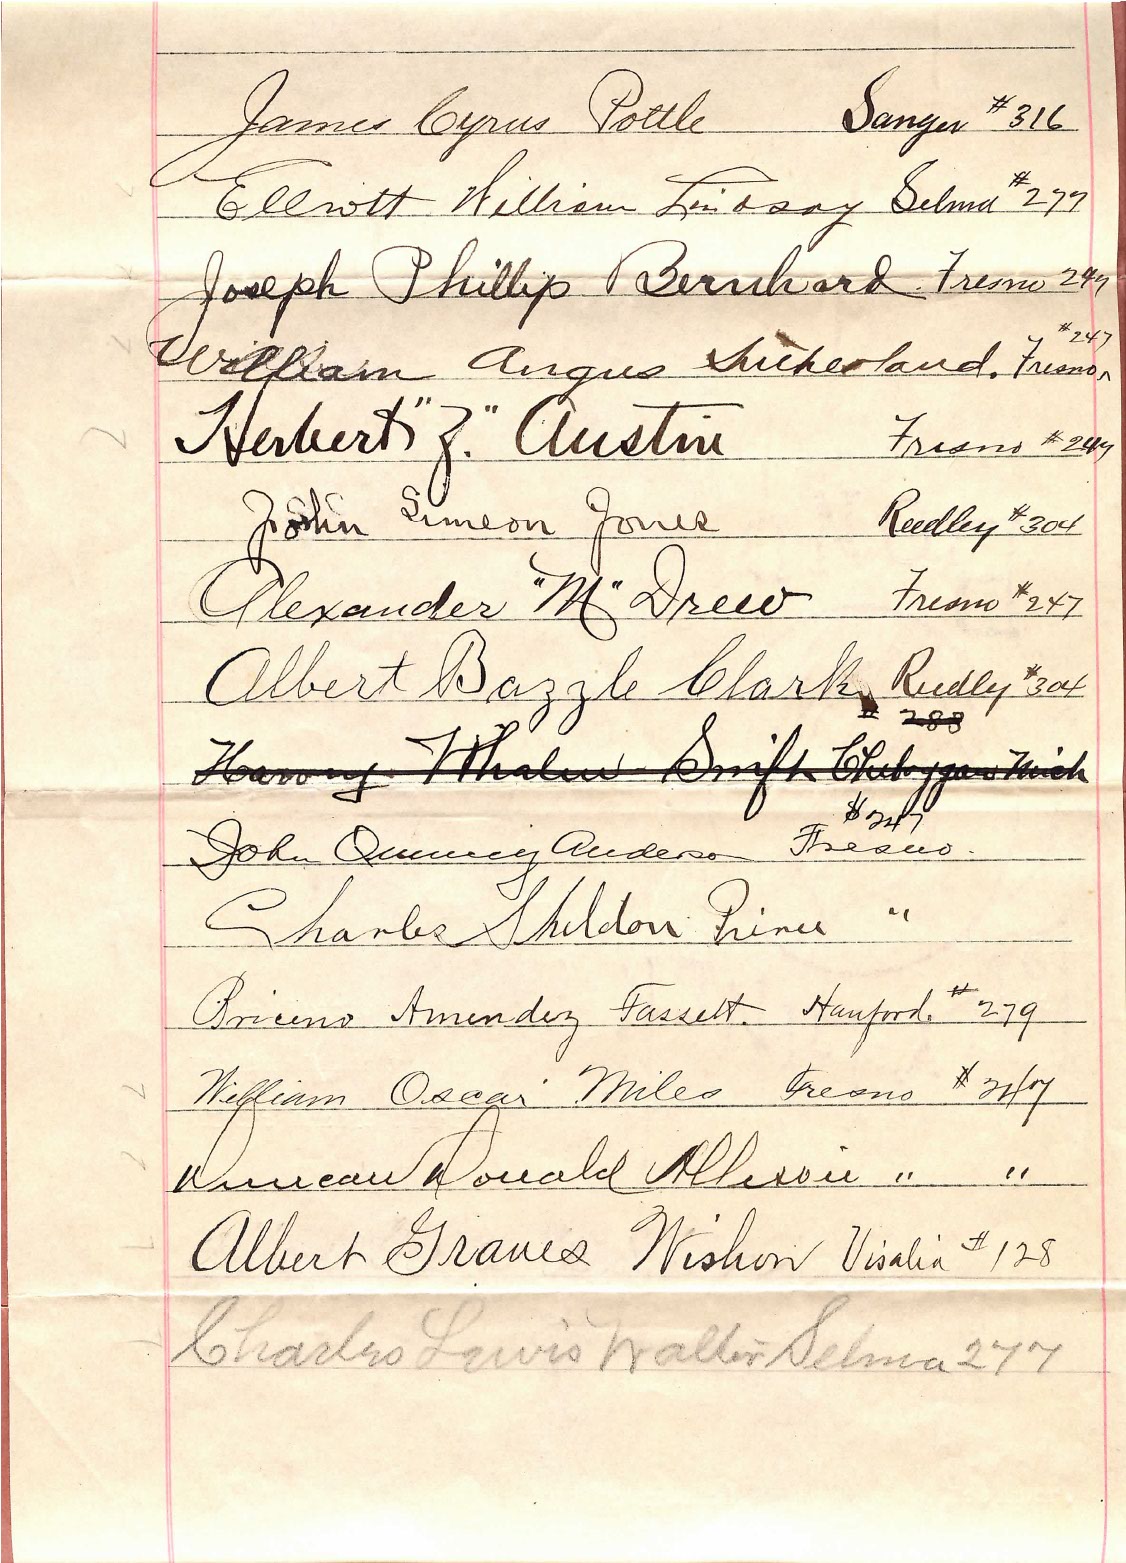 James Cyrus Pottle Sanger #316
Elliott William Lindsay Selma #277
Joseph Phillip Bernhard. Fresno 247
William Angus Sutherland. Fresno, #247
Herbert "Z." Austin Fresno #247
John Simeon Jones Reedley #304
Alexander "M" Drew Fresno #247
Albert Bazzle Clark Reedley #304
# 288
Whalen Swift Cheboygan Mich
#247
John Quincy Anderson Fresno.
Charles Sheldon Prince "
Briceno Amendez Fassett. Hanford. #279
William Oscar Miles Fresno #247
Duncan Donald Allison " "
Albert Graves Wishon Visalia #128
Charles Lewis Walter Selma 277